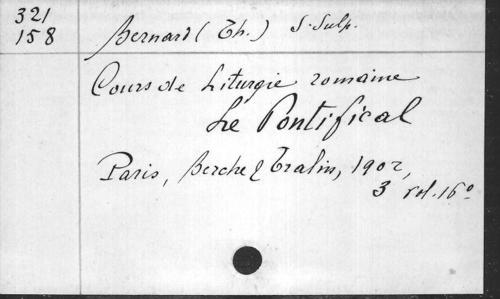 321
158
Bernard (Th.) S. Sulp.
Cours de Liturgie romaine
Le Pontifical
Paris, Berche & Tralin, 1902,
3 vol. 16°